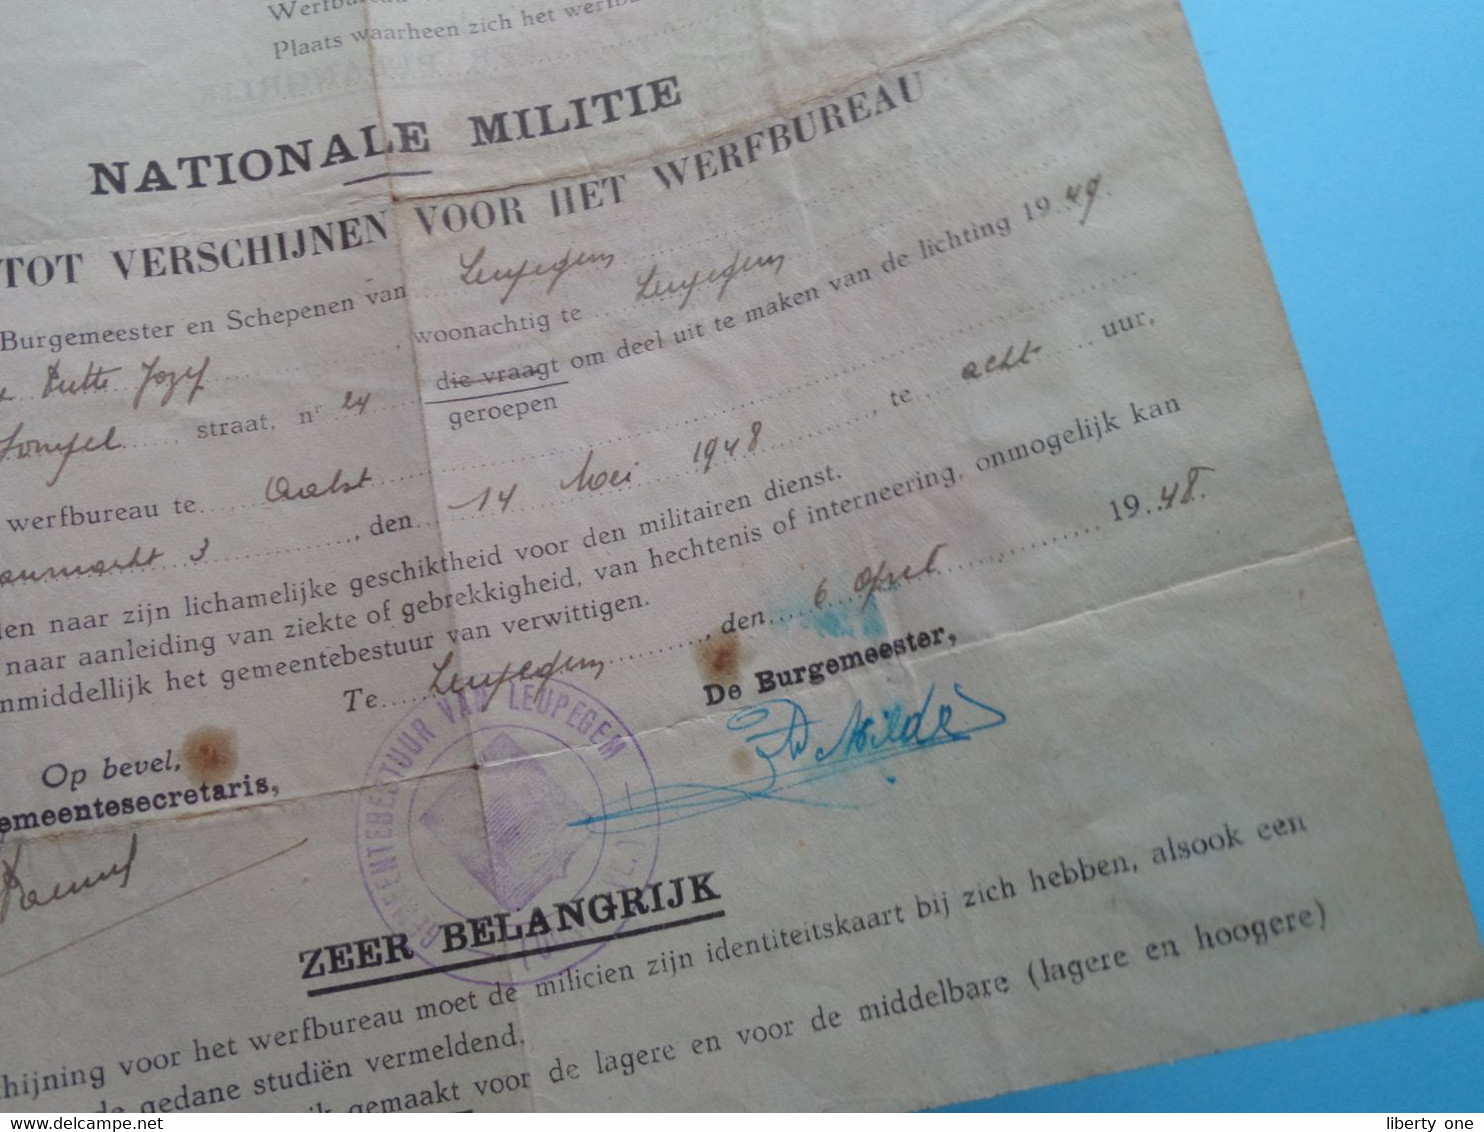 Plaats waarheen zich het
NATIONALE MILITIE
TOT VERSCHIJNEN VOOR HET WERFBUREAU
Burgemeester en Schepenen van Leupegem
Putte Jozef, woonachtig te Leupegem
straat, nr 24 die vraagt om deel uit te maken van de lichting 1949.
geroepen
werfbureau te Aalst
3, den 14 Mei 1948, te acht uur,
naar zijn lichamelijke geschiktheid voor den militairen dienst.
naar aanleiding van ziekte of gebrekkigheid, van hechtenis of interneering, onmogelijk kan
nmiddellijk het gemeentebestuur van verwittigen.
Te Leupegem, den 6 April 1948.
Op bevel,
De Burgemeester,
emeentesecretaris,
GEMEENTEBESTUUR VAN LEUPEGEM
ZEER BELANGRIJK
hijning voor het werfbureau moet de milicien zijn identiteitskaart bij zich hebben, alsook een
de gedane studiën vermeldend.
gemaakt voor de lagere en voor de middelbare (lagere en hoogere)
liberty one